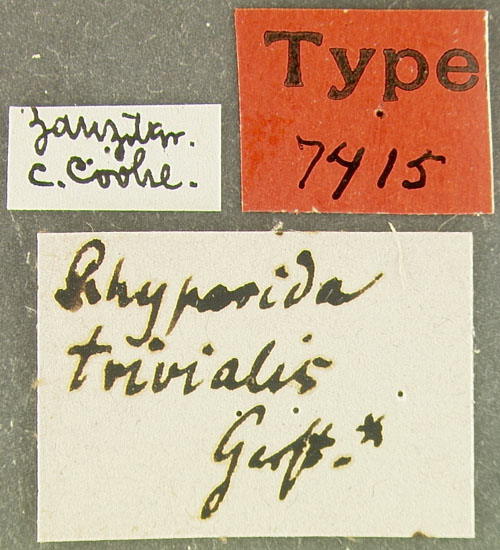 Type
7415
Zanzibar.
C. Cooke.
Rhyparida
trivialis
Gerst.*